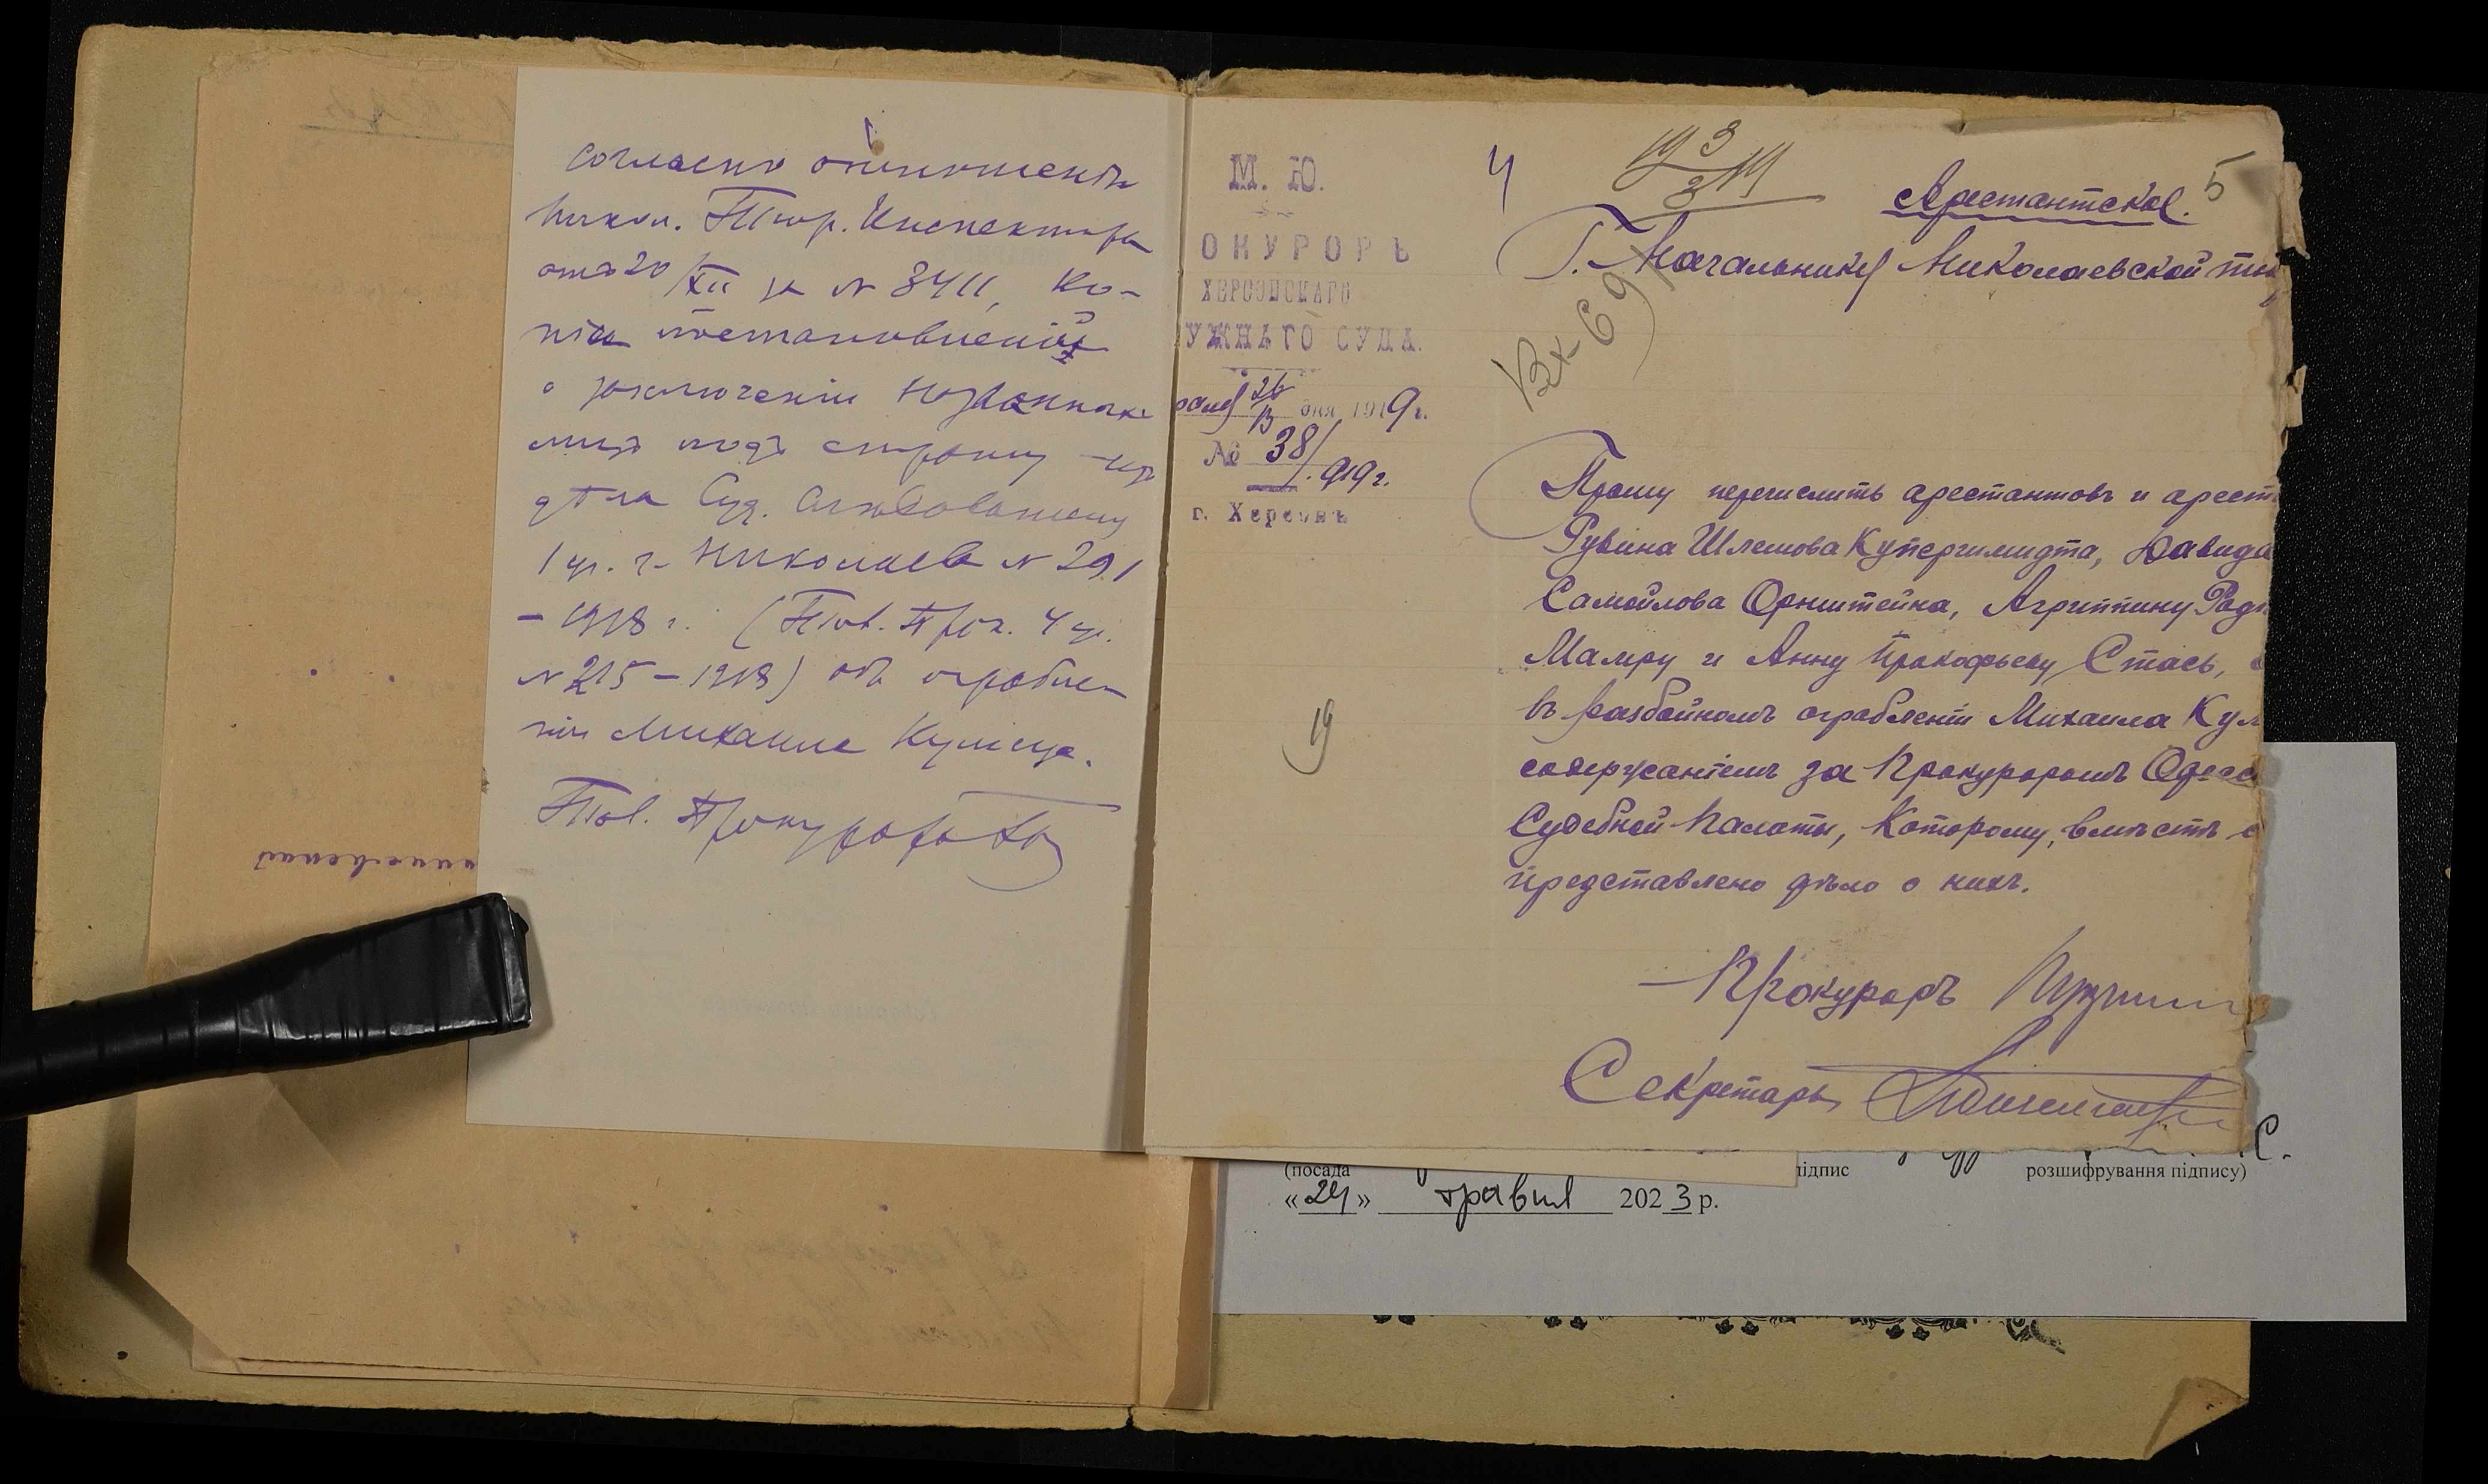 согласно отношенія
Никол. Тюр. Инспектора
отъ 20/XII за N 8411, ко-
піи постановленій
о заключеніи названных
лицъ подъ стражу изъ
дѣла Суд. Слѣдователя
1 уч. г. Николаева N 291
– 1918 г. (Тов. Прок. 4 уч.
N 215 – 1918) объ ограбле-
ніи Михаила Кулица.
Тов. Прокурора
М. Ю.
ОКУРОРЪ
ХЕРСОНСКАГО
УЖНАГО СУДА.
раля 26/13 дня 1919 г.
№ 38/
919 г.
г. Херсонъ
19
4
19 3/3 19
5
Арестантское.
Г. Начальнику Николаевской тю
Вх 69
Прошу перечислить арестантовъ и арест
Рувина Шлемова Купершмидта, Давида
Самойлова Орнштейна, Агриппину Роди
Мамру и Анну Прокофьеву Стась,
въ разбойномъ ограбленіи Михаила Кул
содержаніемъ за Прокуроромъ Одесс
Судебной Палаты, Которому, вмѣстѣ с
представлено дѣло о нихъ.
Прокуроръ
Секретарь
С.
(посада
підпис
розшифрування підпису)
«24» травня 2023 р.